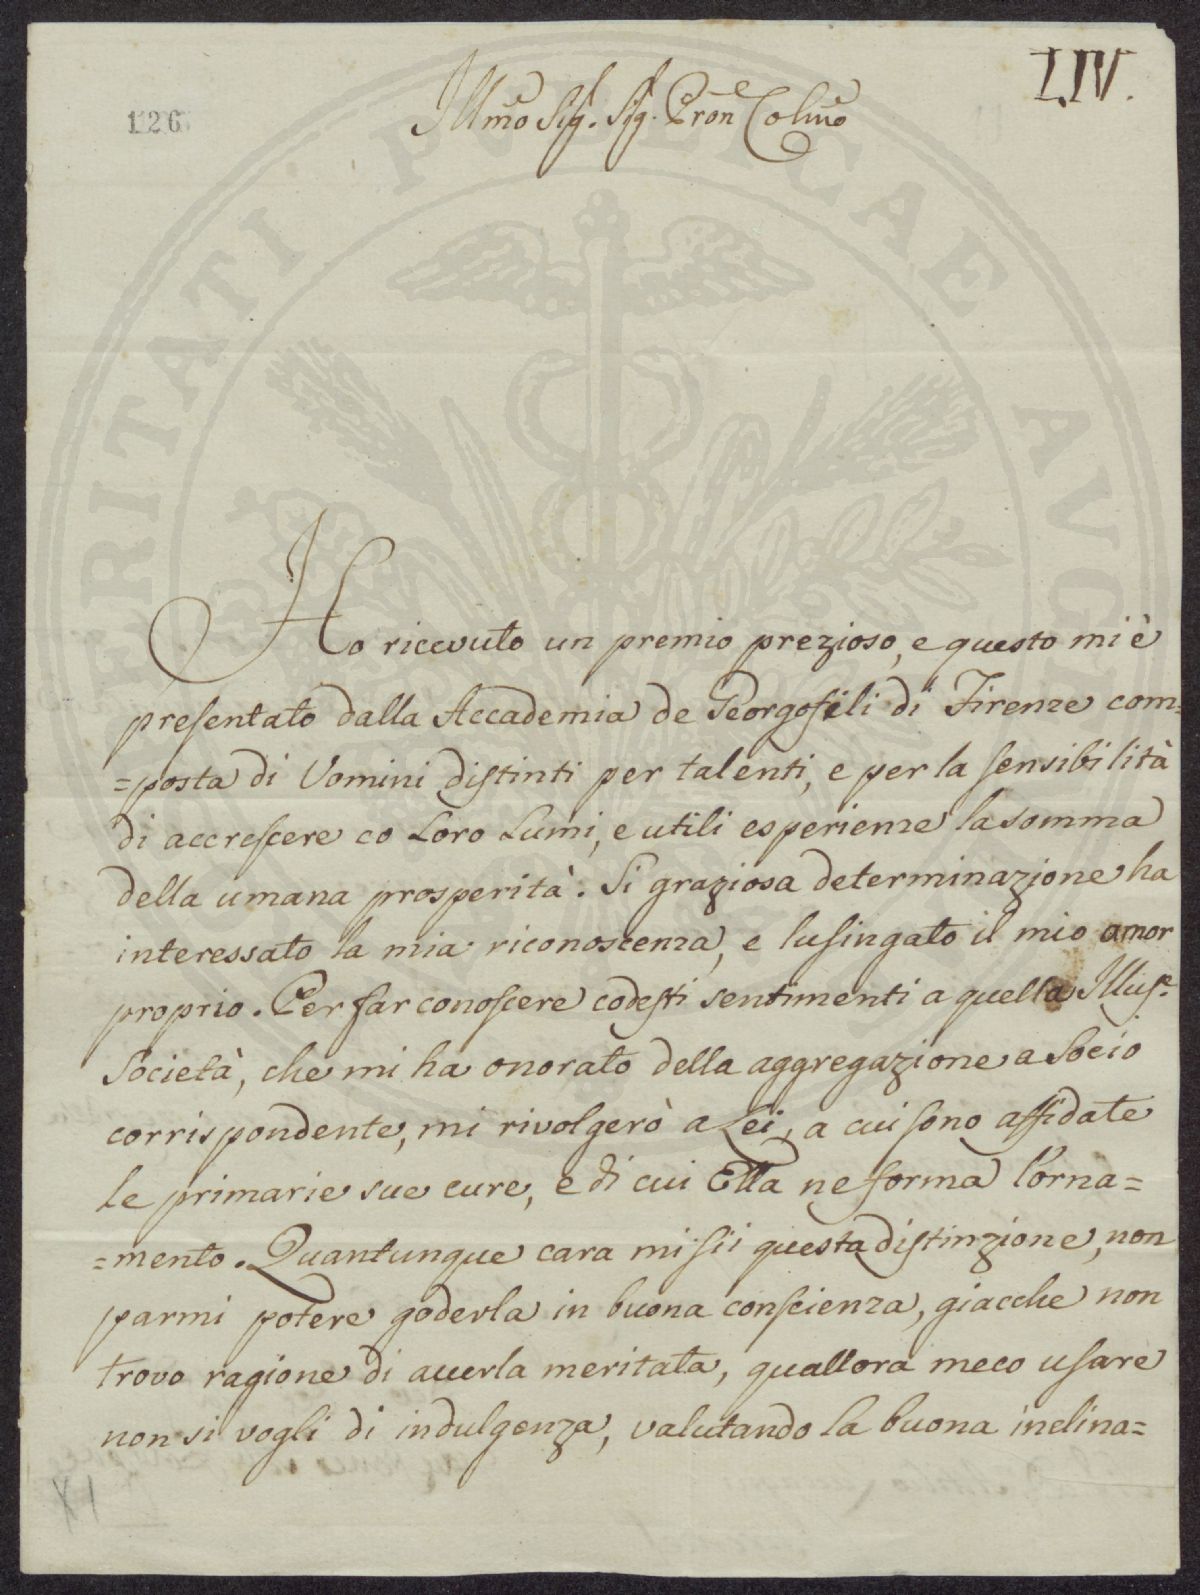 LIV.
126
Illmo Sig. Sig. Pron Colmo
Ho ricevuto un premio prezioso, e questo mi è
presentato dalla Accademia de Georgofili di Firenze com=
=posta di Uomini distinti per talenti, e per la sensibilità
di accrescere co Loro Lumi, e utili esperienze la somma
della umana prosperità. Si graziosa determinazione ha
interessato la mia riconoscenza, e lusingato il mio amor
proprio. Per far conoscere codesti sentimenti a quella Illus.e
Società, che mi ha onorato della aggregazione a Socio
corrispondente, mi rivolgerò a Lei, a cui sono affidate
le primarie sue cure, e di cui Ella ne forma l'orna=
=mento. Quantunque cara mi sii questa distinzione, non
parmi potere goderla in buona conscienza, giacche non
trovo ragione di averla meritata, quallora meco usare
non si vogli di indulgenza, valutando la buona inclina=